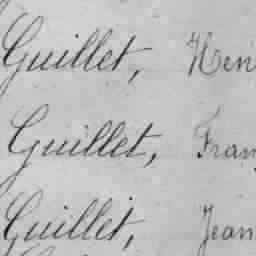 Guillet, Hen
Guillet, Fran
Guillet, Jean